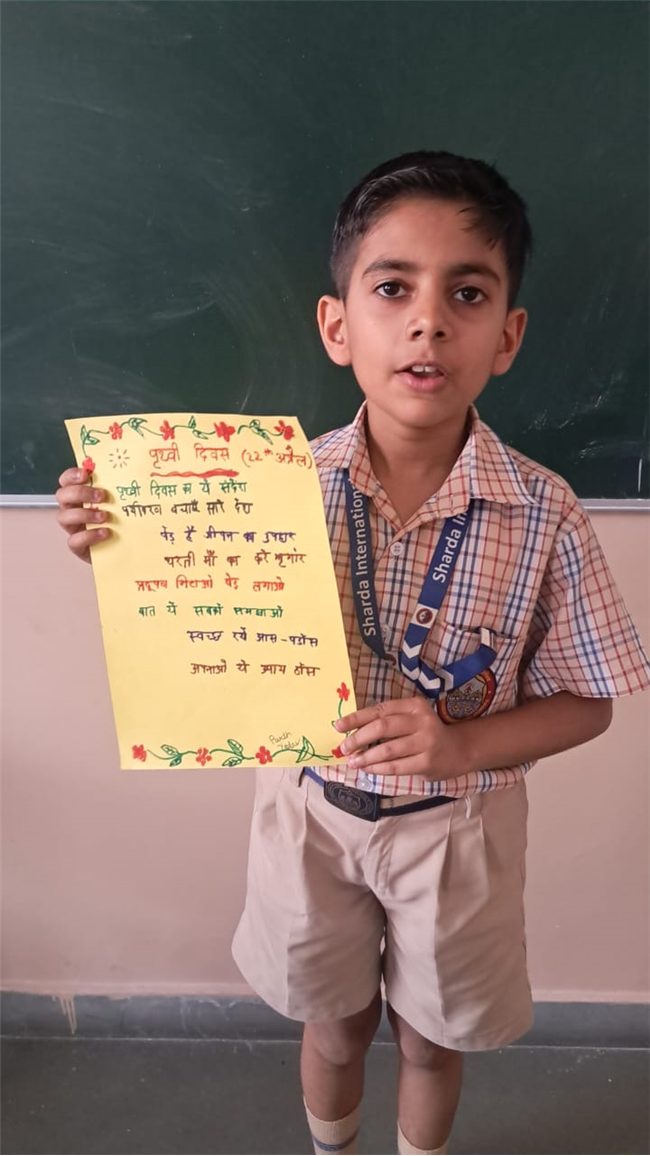 पृथ्वी दिवस (22nd अप्रैल)
पृथ्वी दिवस का ये संदेश
पर्यावरण बचाएं सारे देश
पेड़ हैं जीवन का उपहार
धरती माँ का करें श्रृंगार
प्रदूषण मिटाओ पेड़ लगाओ
बात ये सबको समझाओ
स्वच्छ रखें आस-पडोस
अपनाओ ये उपाय ठोस
Parth
Sharda International
Sharda In